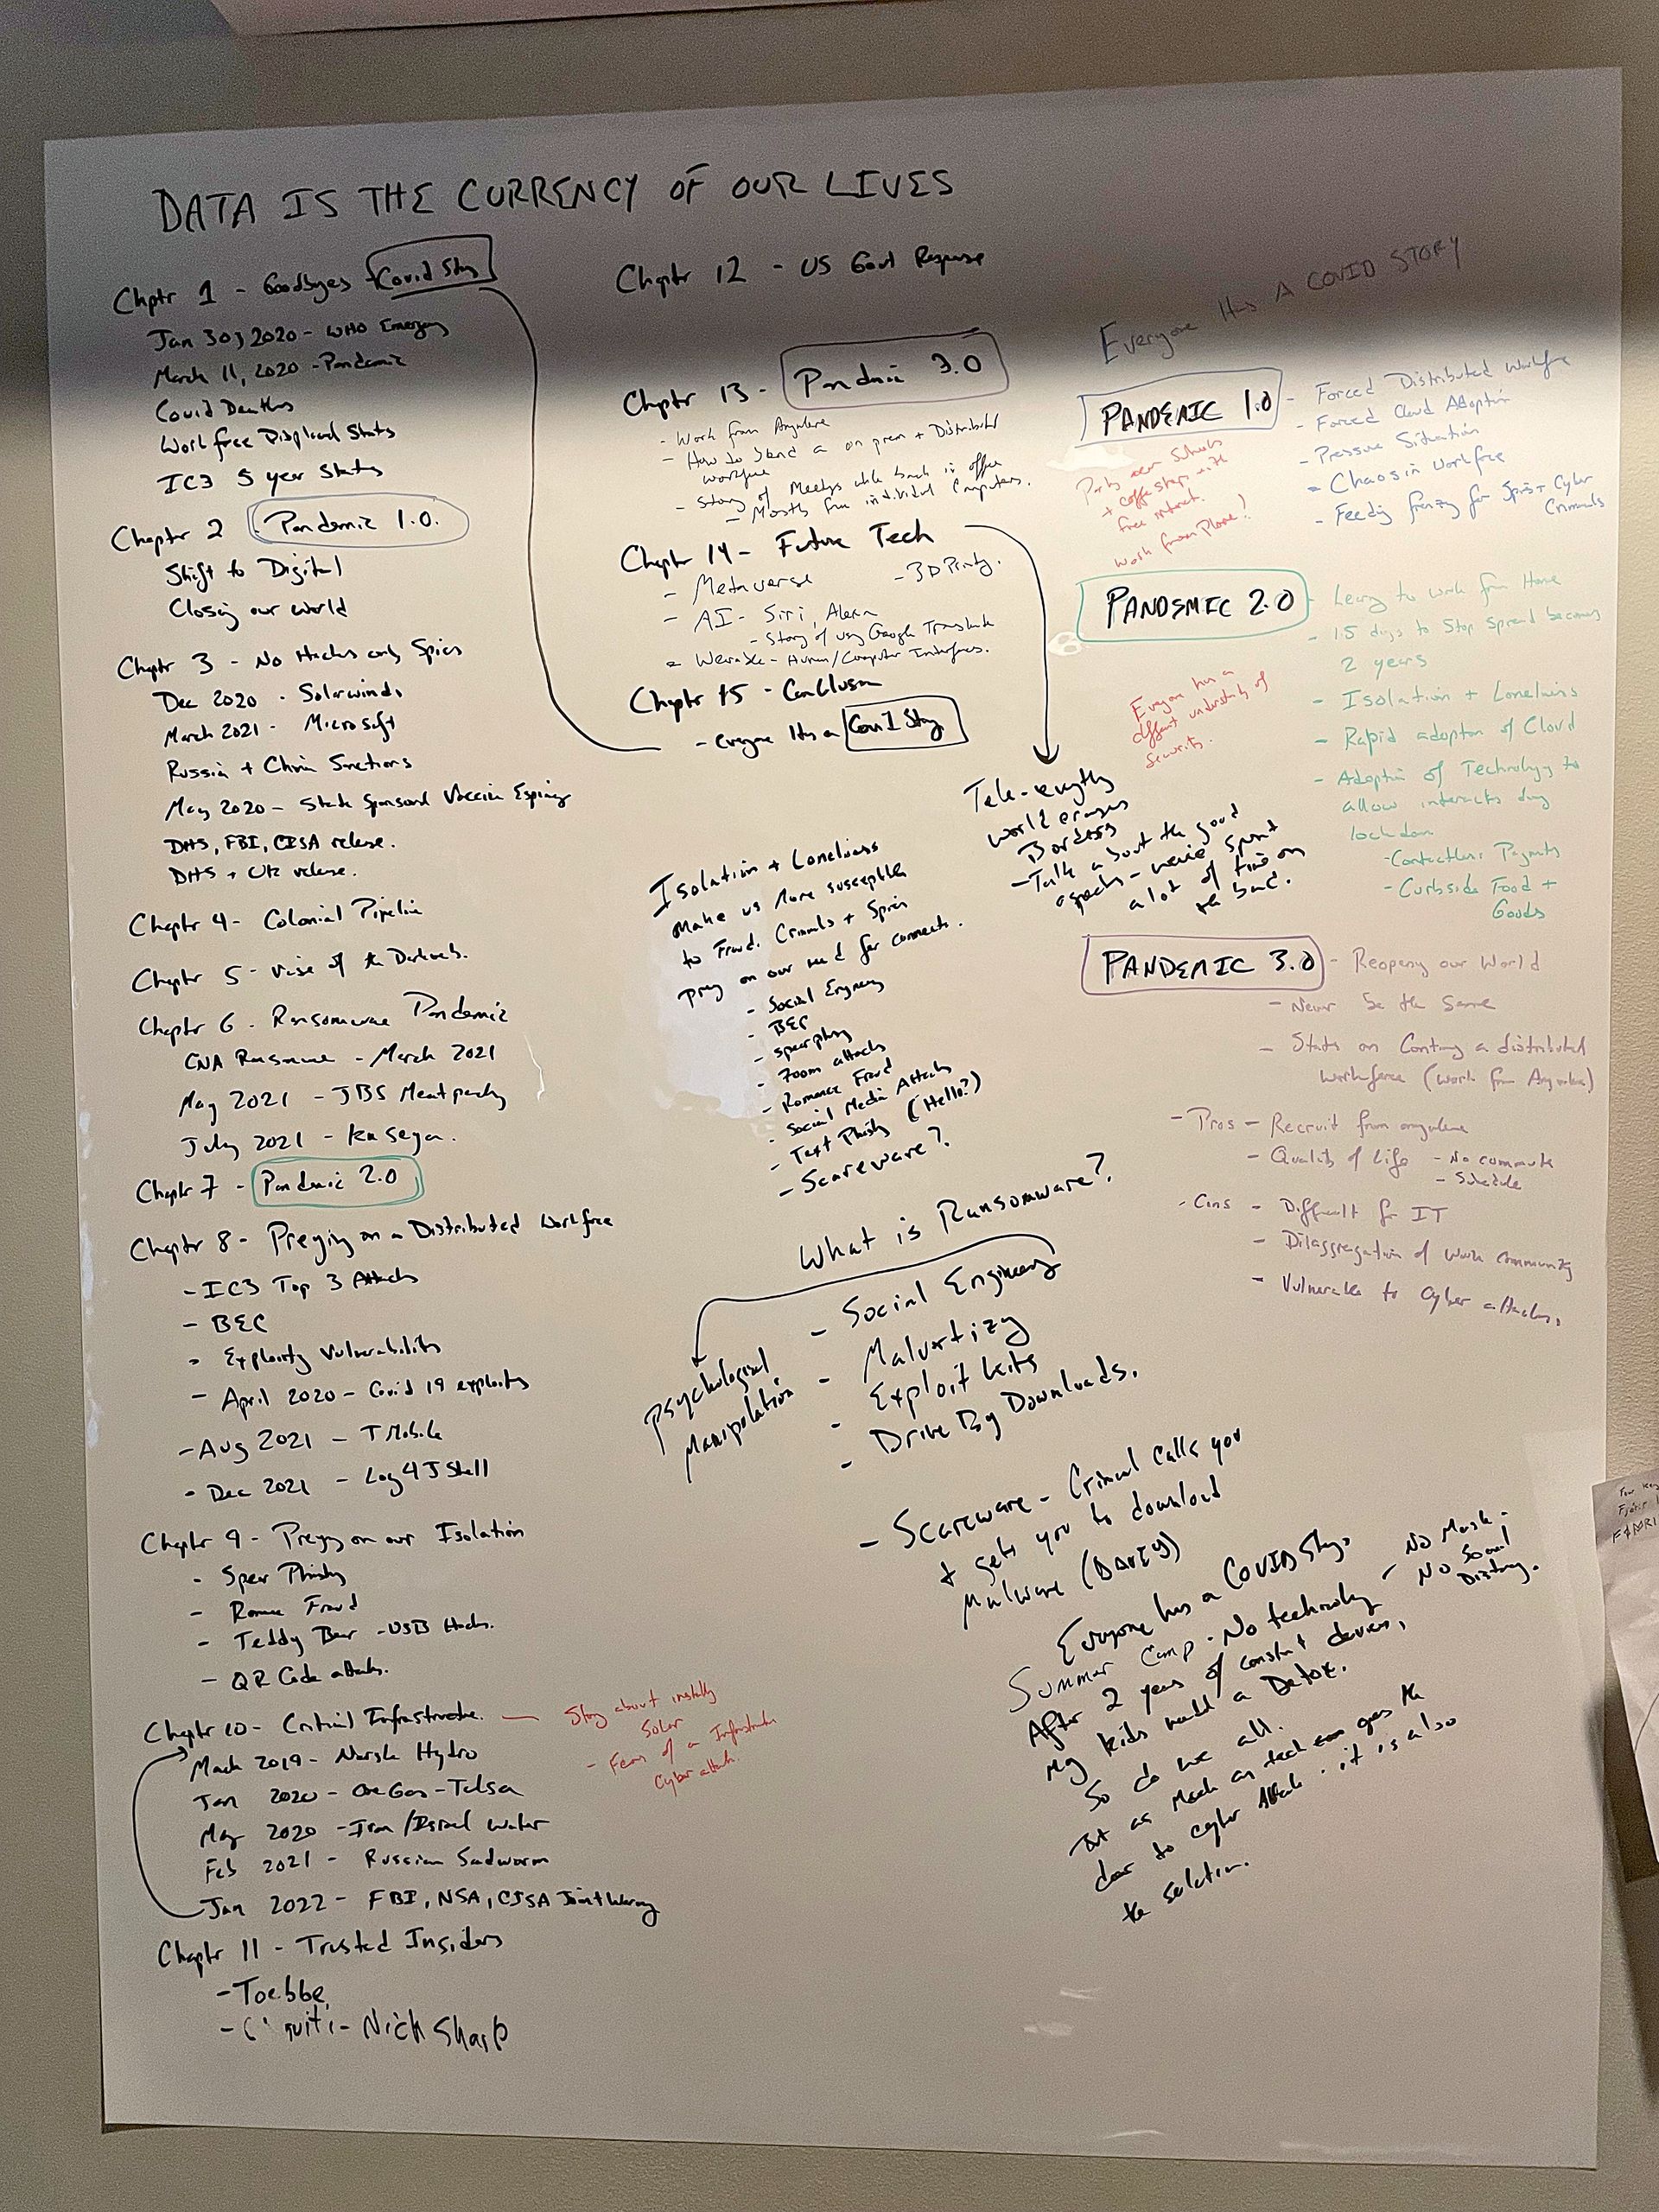 DATA IS THE CURRENCY OF OUR LIVES
Chptr 1 - Goodbyes + Covid Story
Jan 30, 2020 - WHO Emergency
March 11, 2020 - Pandemic
Covid Deaths
Workforce Displaced Stats
IC3 5 year Stats
Chapter 2 Pandemic 1.0.
Shift to Digital
Closing our world
Chapter 3 - No Hacks only Spies
Dec 2020 - Solarwinds
March 2021 - Microsoft
Russia + China Sanctions
May 2020 - State Sponsored Vaccine Espionage
DHS, FBI, CISA release.
DHS + UK release.
Chapter 4 - Colonial Pipeline
Chapter 5 - rise of the Darkweb.
Chapter 6 - Ransomware Pandemic
CNA Ransomware - March 2021
May 2021 - JBS Meatpacking
July 2021 - Kaseya.
Chaptr 7 - Pandemic 2.0
Chaptr 8 - Preying on a Distributed Workforce
- IC3 Top 3 Attacks
- BEC
- Exploiting Vulnerabilities
- April 2020 - Covid 19 exploits
- Aug 2021 - TMobile
- Dec 2021 - Log4JShell
Chapter 9 - Preying on our Isolation
- Spear Phishing
- Romance Fraud
- Teddy Bear - USB Hacks.
- QR Code attacks.
Chaptr 10 - Critical Infrastructure.
- Story about installing
Solar
- Fears of a Infrastructure
Cyber attack.
March 2019 - Norsk Hydro
Jan 2020 - OneGas - Tulsa
May 2020 - Iran/Israel water
Feb 2021 - Russian Sandworm
Jan 2022 - FBI, NSA, CISA Joint Warning
Chaptr 11 - Trusted Insiders
- Toebbe
- Nick Sharp
Chaptr 12 - US Govt Response
Chaptr 13 - Pandemic 3.0
- Work from Anywhere
- How to Send a on prem + Distributed
workforce
- Story of Meetings while back in office
- Mostly from individual Computers.
Chaptr 14 - Future Tech
- Metaverse
- 3D Printing.
- AI - Siri, Alexa
- Story of using Google Translate
- Wearable - Human/Computer Interfaces.
Chaptr 15 - Conclusion
- everyone Has a Covid Story
Tele-everything
world erases
Borders
- Talk about the good
aspects - we've spent
a lot of time on
the bad.
Isolation + Loneliness
make us more susceptible
to Fraud. Criminals + Spies
prey on our need for connects.
- Social Engineering
- BEC
- spearphishing
- Zoom attacks
- Romance Fraud
- Social Media Attacks
- Text Phishing (Hello?)
- Scareware?
What is Ransomware?
- Social Engineering
psychological
manipulation
- Malvertizing
- Exploit Kits
- Drive By Downloads.
- Scareware - Criminal calls you
+ gets you to download
Malware (DARES)
Everyone has a COVID Story.
Summer Camp - No technology - No Mask -
No Social
Distancing.
After 2 years of constant devices,
my kids need a Detox.
So do we all.
But as much as tech opens the
door to cyber attack - it is also
the solution.
Everyone Has A COVID STORY
PANDEMIC 1.0
- Forced Distributed Workforce
- Forced Cloud Adoption
- Pressure Situation
- Chaos in workforce
- Feeding frenzy for Spies + Cyber
Criminals
Schools
+ coffee shops with
free internet.
Work from Phone?
PANDEMIC 2.0
- Learning to work from Home
- 15 days to Stop Spread becomes
2 years
- Isolation + Loneliness
- Rapid adoption of Cloud
- Adoption of Technology to
allow interacts during
lockdown
- Contactless Payments
- Curbside Food +
Goods
Everyone has a
different understanding of
Security.
PANDEMIC 3.0 - Reopening our World
- Never be the same
- Stats on Continuing a distributed
workforce (Work from Anywhere)
- Pros - Recruit from anywhere
- Quality of Life - No commute
- Schedule
- Cons - Difficult for IT
- Disaggregation of work community
- Vulnerable to Cyber attacks.